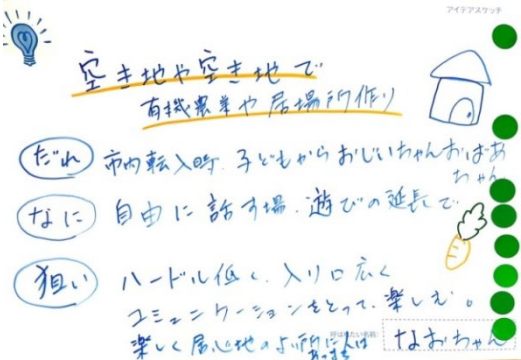 アイデアスケッチ
空き地や空き地で
有機農業や居場所作り
だれ 市内転入時、子どもからおじいちゃんおばあ
ちゃん
なに 自由に話す場、遊びの延長で
狙い ハードル低く、入り口広く
コミュニケーションをとって、楽しむ。
楽しく居心地のよい所に人は
あつまる
呼ばれたい名前 なおちゃん